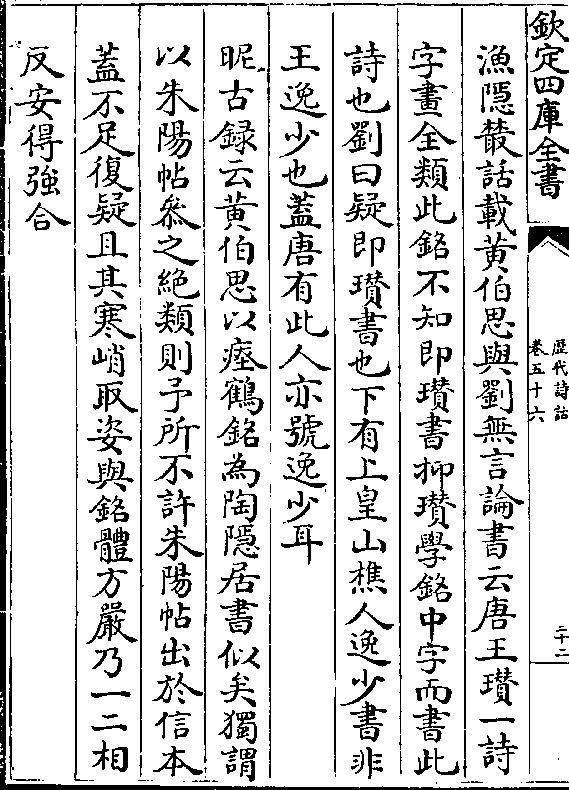 欽定四庫全書
歷代詩話
卷五十六
二十二
漁隱叢話載黃伯思與劉無言論書云唐王瓚一詩
字畫全類此銘不知即瓚書抑瓚學銘中字而書此
詩也劉曰疑即瓚書也下有上皇山樵人逸少書非
王逸少也蓋唐有此人亦號逸少耳
昵古録云黃伯思以瘞鶴銘為陶隠居書似矣獨謂
以朱陽帖叅之絶類則予所不許朱陽帖出於信本
蓋不足復疑且其寒峭取姿與銘體方嚴乃一二相
反安得強合